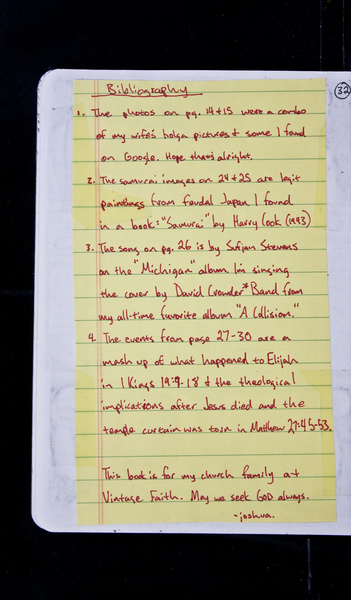 Bibliography
32
1. The photos on pg. 14+15 were a combo
of my wife's holga pictures & some I found
on Google. Hope that's alright.
2. The samurai images on 24+25 are legit
paintings from feudal Japan I found
in a book: "Samurai" by Harry Cook (1993)
3. The song on pg. 26 is by Sufjan Stevens
on the "Michigan" album. I'm singing
the cover by David Crowder* Band from
my all-time favorite album "A Collision."
4. The events from page 27-30 are a
mash up of what happened to Elijah
in 1 Kings 19:9-18 & the theological
implications after Jesus died and the
temple curtain was torn in Matthew 27:45-53.
This book is for my church family at
Vintage Faith. May we seek GOD always.
-joshua.